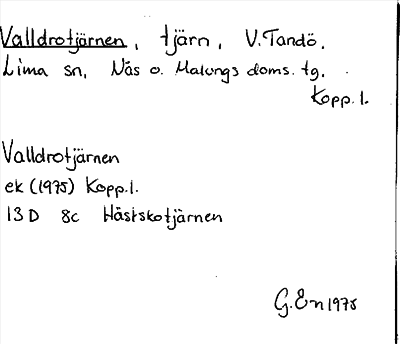 Valldrotjärnen, tjärn, V. Tandö.
Lima sn, Näs o. Malungs doms. tg.
Kopp. l.
Valldrotjärnen
ek (1975) Kopp. l.
13 D 8c Hästskotjärnen
G. En 1975